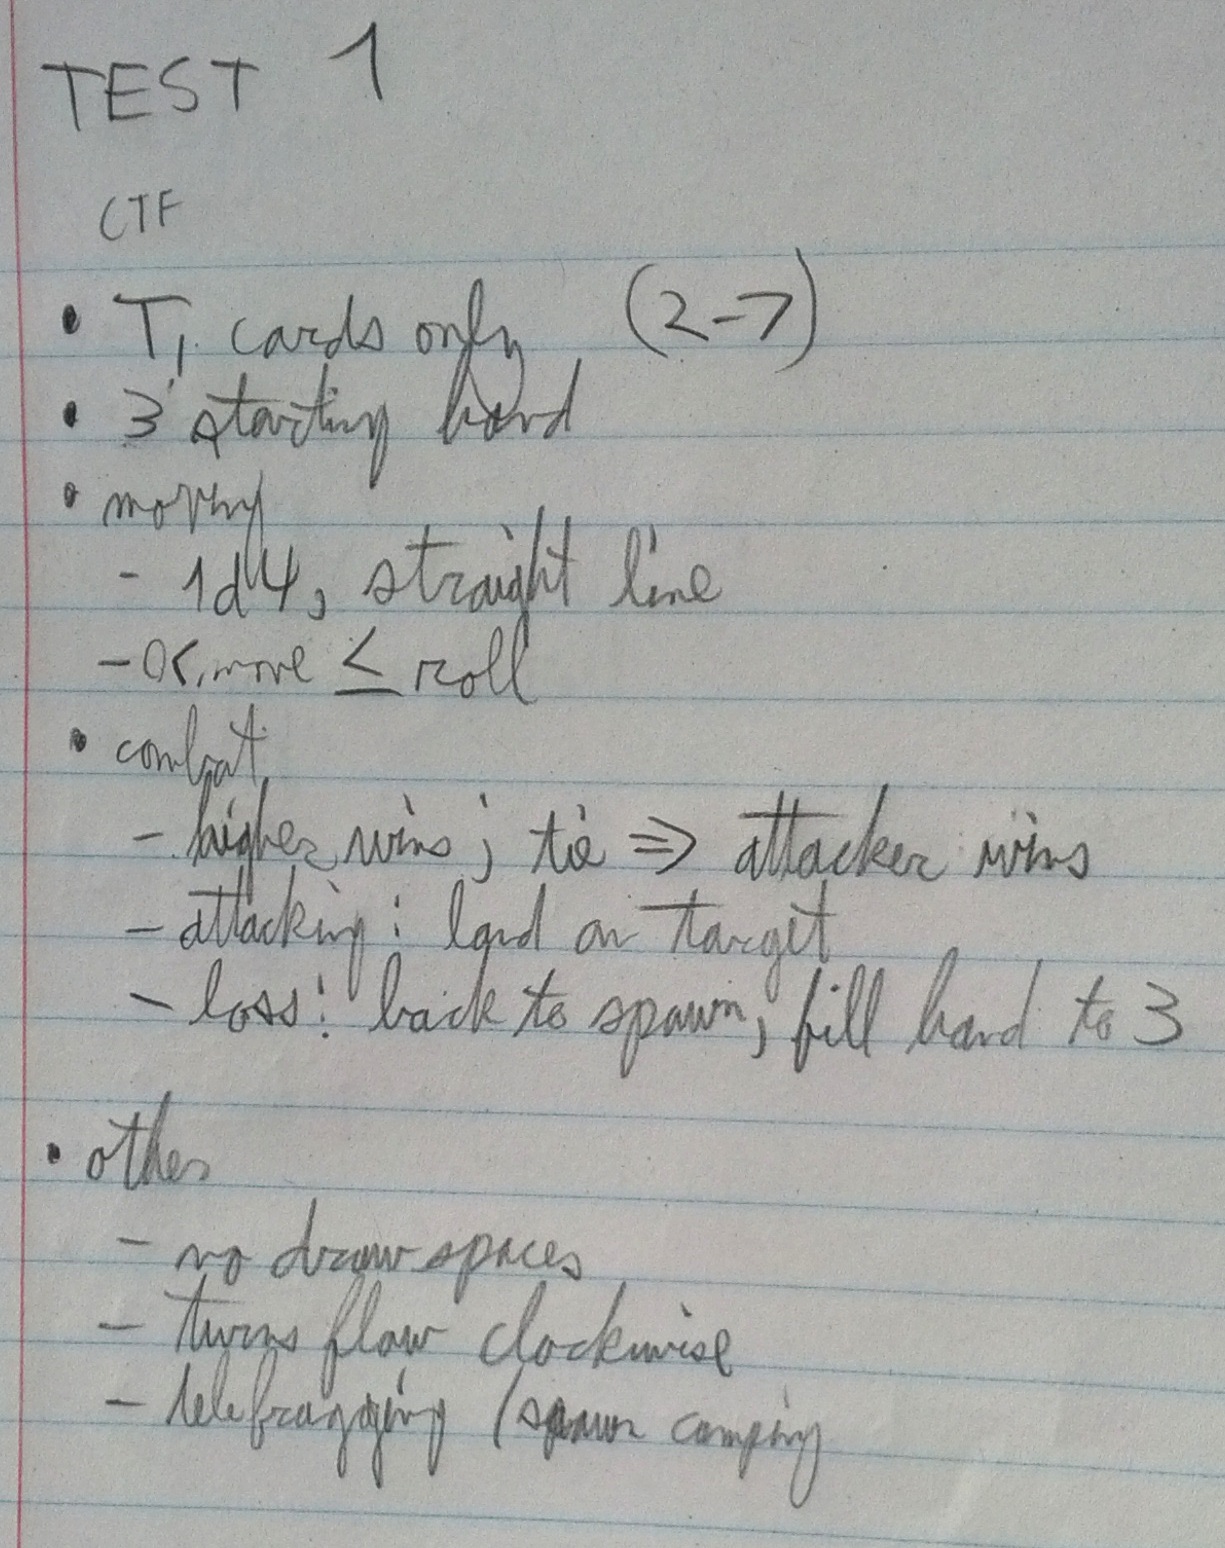 TEST 1
CTF
• T1 cards only (2-7)
• 3 starting hand
• moving
- 1d4, straight line
- 0<move ≤ roll
• combat
- higher wins; tie ⇒ attacker wins
- attacking: land on target
- loss: back to spawn; fill hand to 3
• other
- no draw spaces
- turns flow clockwise
- telefragging / spawn camping